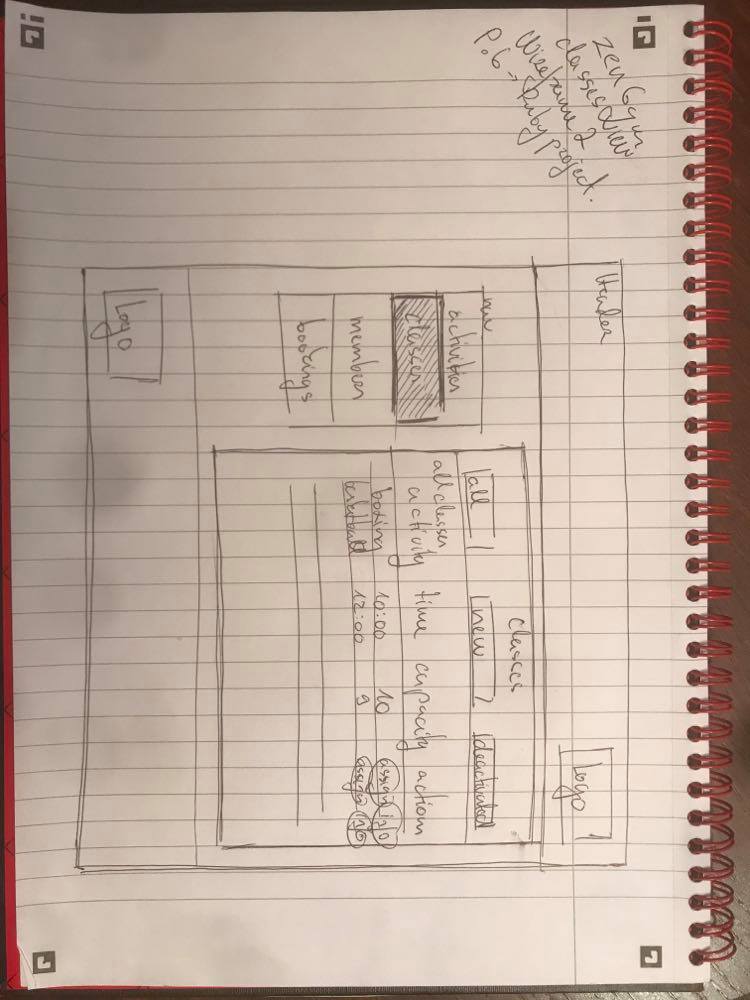 Zen Gym
classes view
wireframe 2
P.6 → Ruby project.
Header
Logo
nav
activities
classes
members
bookings
classes
all
new
deactivated
all classes
activity time capacity action
boxing 10:00 10 assign
12:00 9 assign
Logo